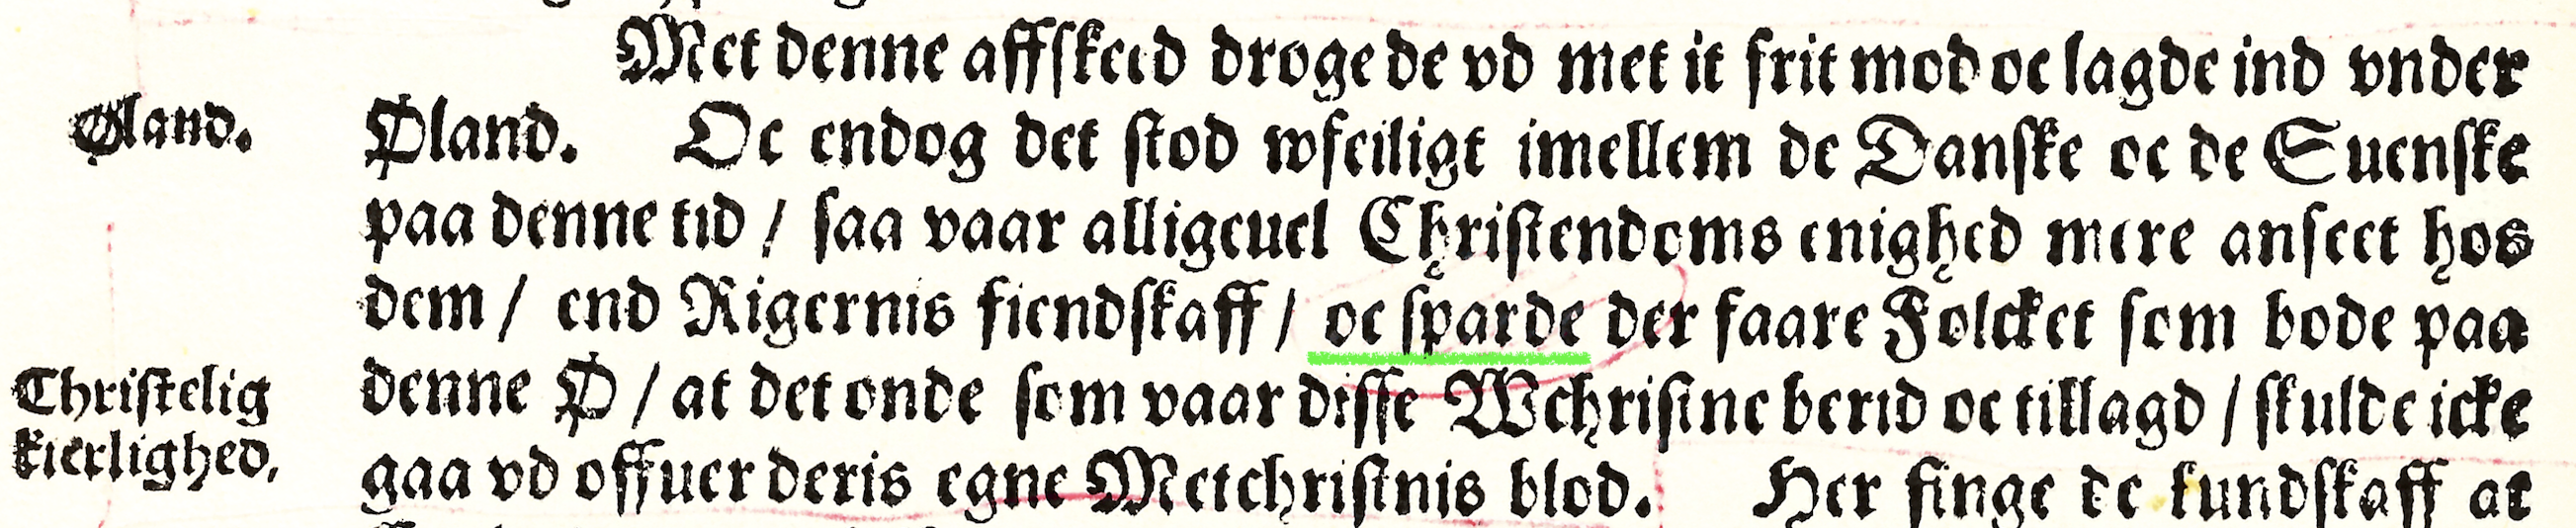 Met denne affskeid droge de vd met it frit mod oc lagde ind vnder
Øland.
Øland. Oc endog det stod wfeiligt imellem de Danske oc de Suenske
paa denne tid / saa vaar alligeuel Christendoms enighed mere anseet hos
dem / end Rigernis fiendskaff / oc sparde der faare Folcket som bode paa
Christelig
kierlighed.
denne Ø / at det onde som vaar disse Wchristne berid oc tillagd / skulde icke
gaa vd offuer deris egne Metchristnis blod. Her finge de kundskaff at